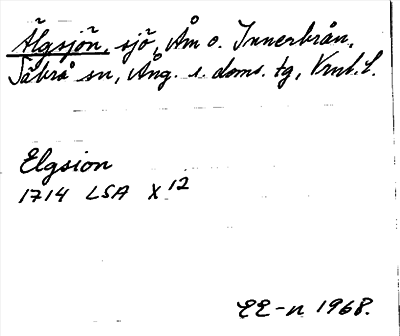 Älgsjön, sjö, Åm o. Innerbrån,
Säbrå sn, Ång. s. doms. tg, Vrnl. l.
Elgsion
1714 LSA X 12
EE-n 1968.